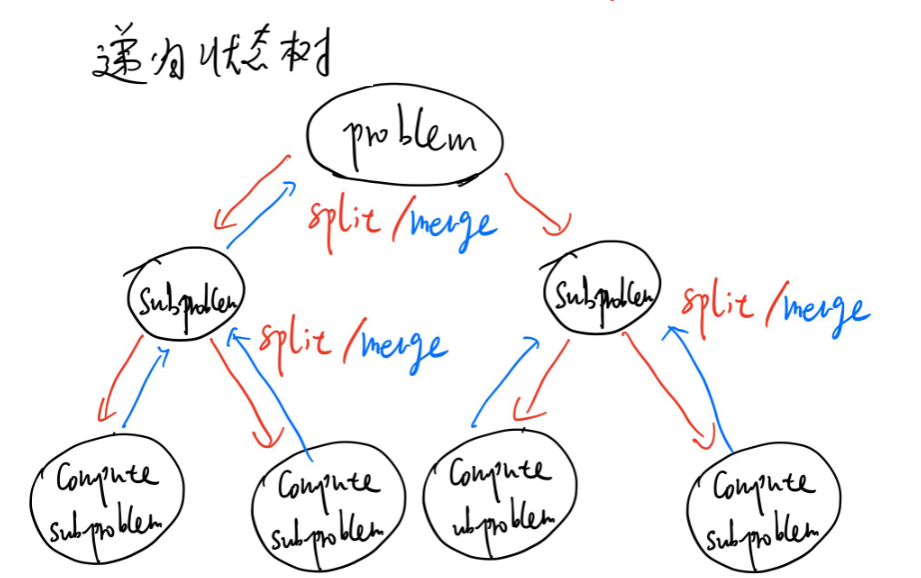 递归状态树
problem
split/merge
subproblem
subproblem
split/merge
split/merge
Compute
subproblem
Compute
subproblem
Compute
ubproblem
Compute
subproblem